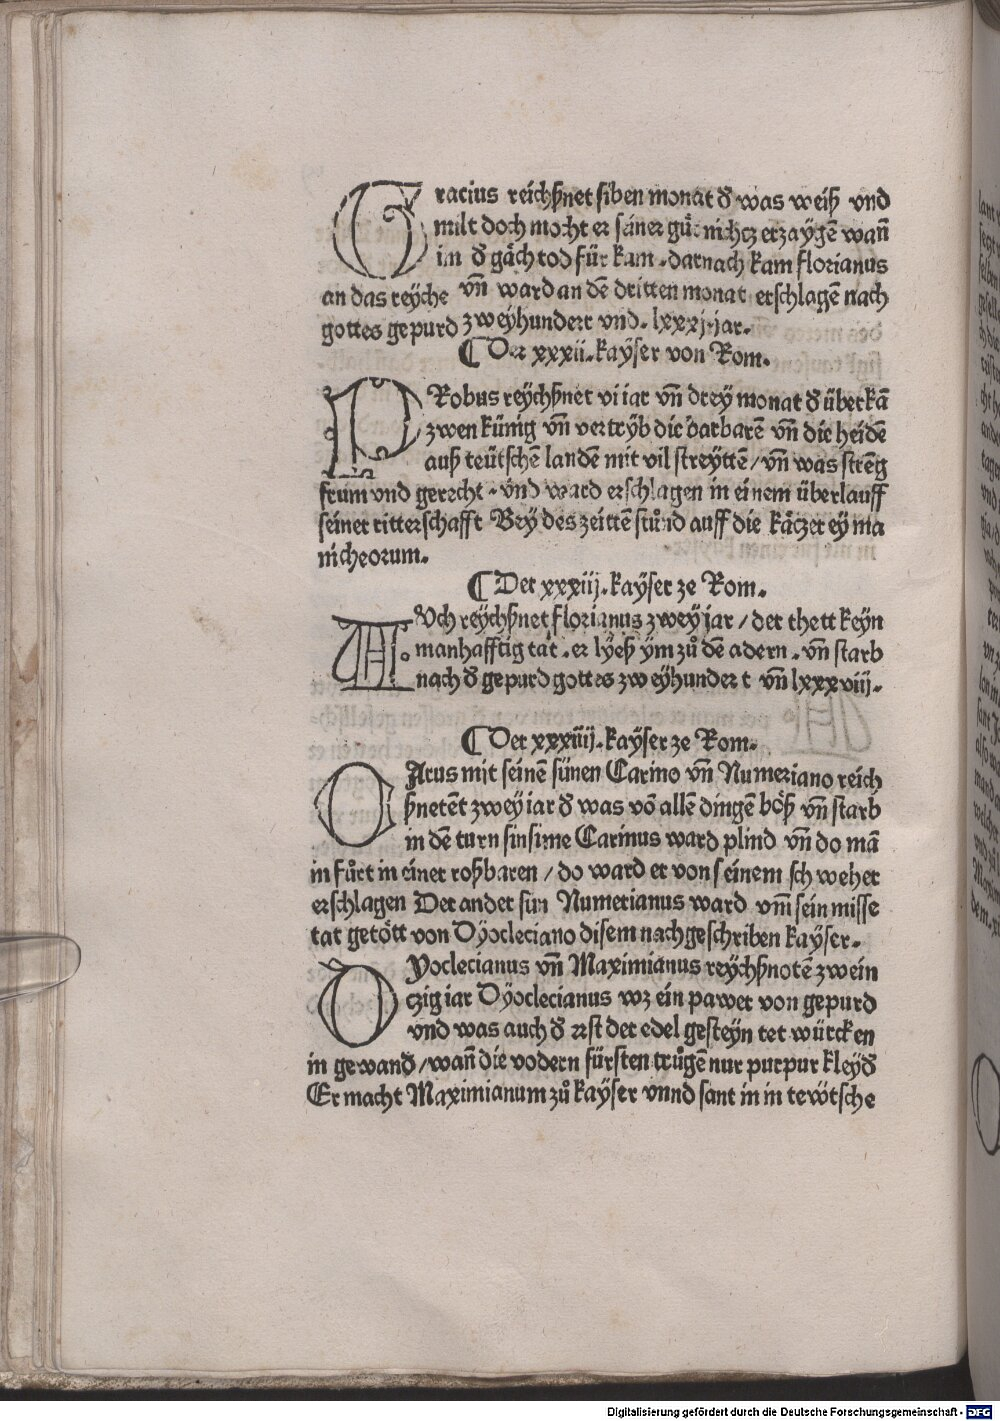 Gracius reichßnet siben monat d̄ was weiß vnd
milt doch mocht er seiner guͤt nichcz erzaygē wan̄
im d̄ gaͤch tod fuͤr kam . darnach kam florianus
an das reyche vn̄ ward an dē dritten monat erschlagē nach
gottes gepurd zweyhundert vnd . lxxxij. jar .
¶ Der xxxii . kaÿser von Rom .
PRobus reÿchßnet vi iar vn̄ dreÿ monat d̄ überkā
zwen künig vn̄ vertrÿb die barbarē vn̄ die heidē
auß teütschē landē mit vil streÿttē / vn̄ was strēg
frum vnd gerecht . vnd ward erschlagen in einem überlauff
seiner ritterschafft Bey des zeittē stuͦnd auff die kaͤczer ey ma
nicheorum .
¶ Der xxxiij . kaÿser ze Rom .
AVch reÿchßnet florianus zwey jar / der thett keyn
manhafftig tat . er lyeß ÿm zuͦ dē adern . vn̄ starb
nach d̄ gepurd gottes zweÿhundert vn̄ lxxxviij .
¶ Der xxxiiij . kaÿser ze Rom .
CArus mit seinē sünen Carino vn̄ Numeriano reich
ßnetēt zwey iar d̄ was vō allē dingē boͤß vn̄ starb
in dē turn sinsime Carinus ward plind vn̄ do mā
in fuͦrt in einer roßbaren / do ward er von seinem schweher
erschlagen Der ander sun Numerianus ward vm̄ sein misse
tat getoͤtt von Dÿocleciano disem nachgeschriben kaÿser .
DYoclecianus vn̄ Maximianus reÿchßnotē zwein
czig iar Dÿoclecianus wz ein pawer von gepurd
vnd was auch d̄ erst der edel gesteyn tet würcken
in gewand / wan̄ die vodern fürsten truͦgē nur purpur kleyd̄
Er macht Maximianum zuͦ kaÿser vnnd sant in in tewtsche
Digitalisierung gefördert durch die Deutsche Forschungsgemeinschaft - DFG